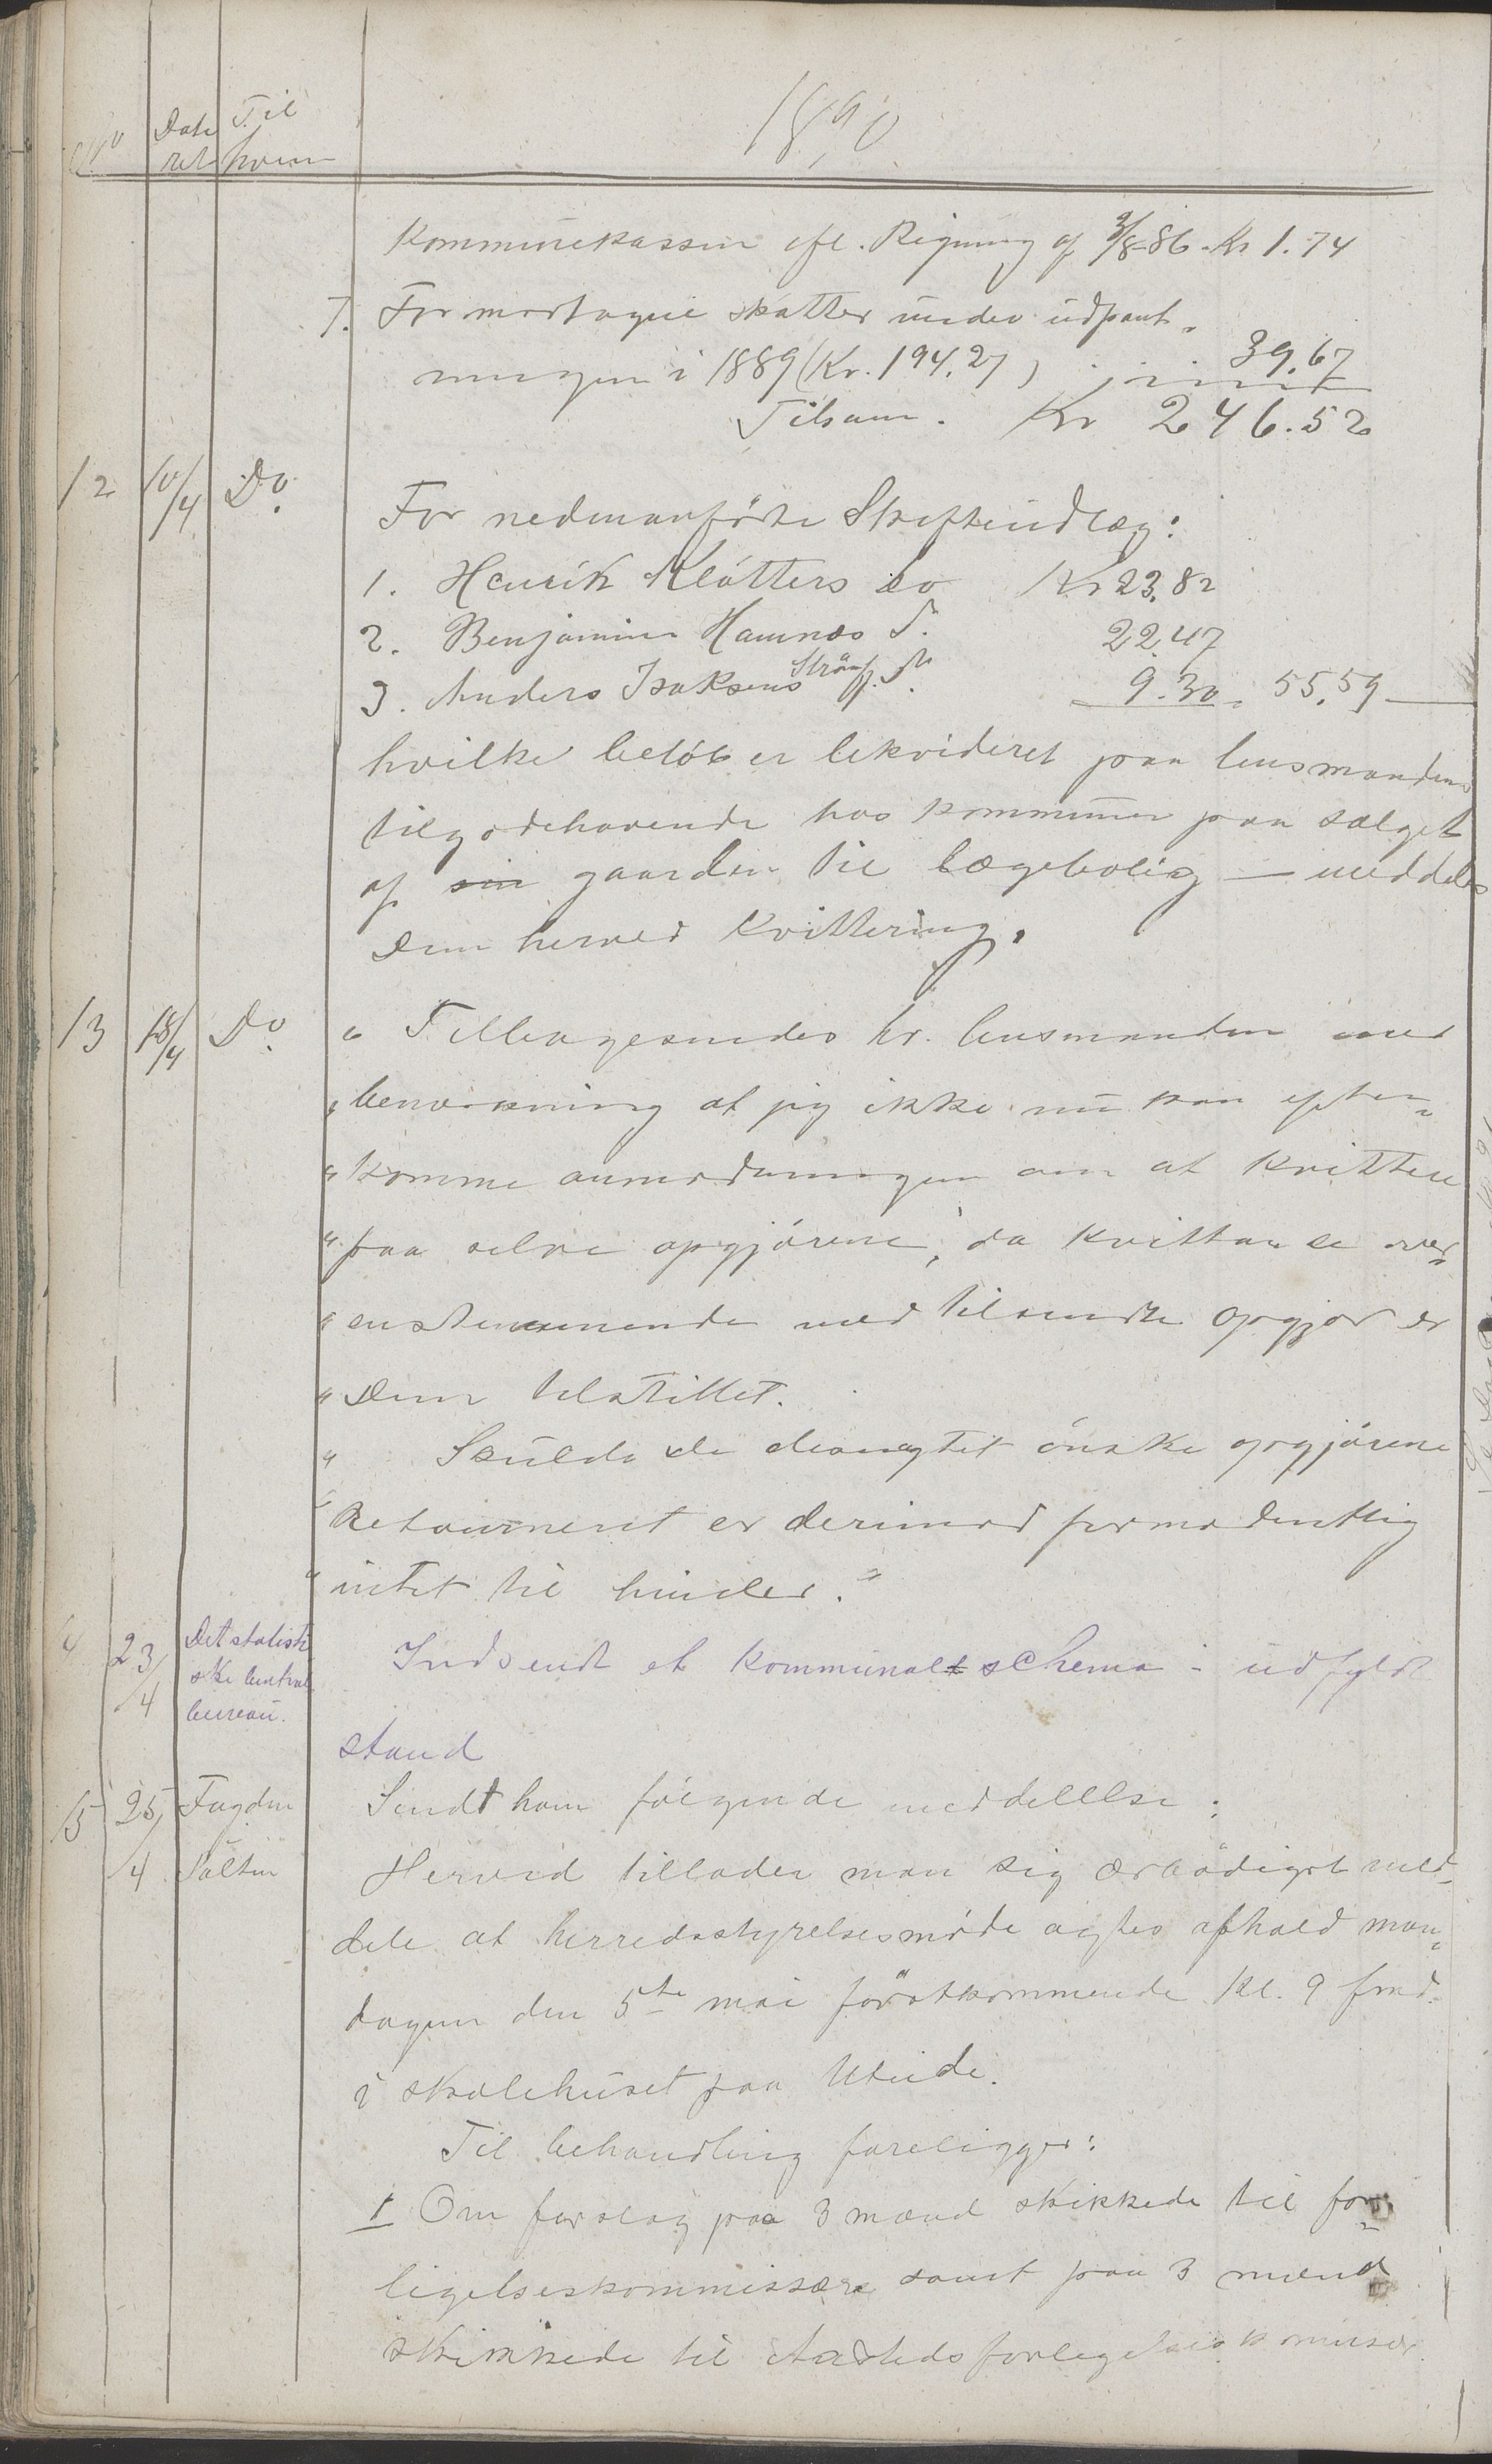 No Date Til
ret hvem
1890
kommunekassen efl. Rigning af 9/8-86. Kr 1.74
7. For modtagne skatter under udpant-
ningen i 1889 (Kr. 194.27) 39.67
Tilsam. Kr 246.52
12 10/4 Do. For nedenanförte Skifteudlæg:
1. Henrik Klötters bo Kr 23.82
2. Benjamin Hamnæs D. 22.47
3. Anders Isaksens D. 9.30 = 55.59
hvilke belöb er likvideret paa lensmandens
tilgodehavende hos kommunen paa salget
af gaarden til lægebolig — meddeles
Dem herved kvittering.
13 18/4 Do. " Tilbagesendes hr. lensmanden med
" bemerkning at jeg ikke nu kan efter-
" komme anmodningen om at kvittere
" paa selve opgjörene, da kvittanse over-
" ensstemmende med tilsendte opgjör er
" Dem tilstillet.
" Skulde De desuagtet önske opgjörene
" Retourneret er derimod formodentlig
" intet til hinder."
4 23/4 Det statisti
ske Central
bureau. Indsendt et kommunalt schema i udfyldt
stand
15 25/4 Fogden
Salten Sendt ham fölgende meddelelse:
Herved tillader man sig ærbödigst med-
dele at herredsstyrelsesmöde agtes afhold man-
dagen den 5te mai förstkommende kl. 9 fmd.
i skolehuset paa Uteide.
Til behandling foreligger:
1 Om forslag paa 3 mænd skikkede til for-
ligelseskommissære samt paa 3 mænd
skikkede til Aastedsforligelseskomissær